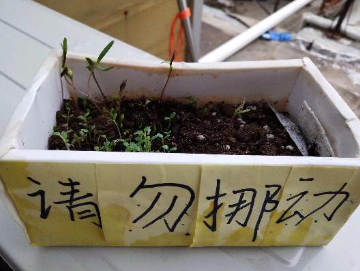 请勿挪动